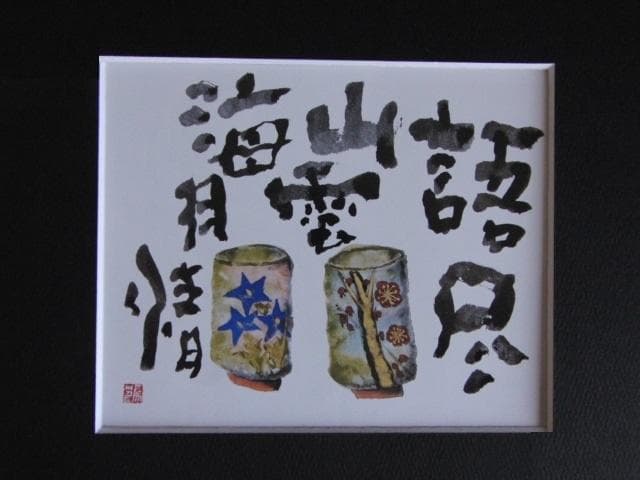 語尽
山雲
海月情